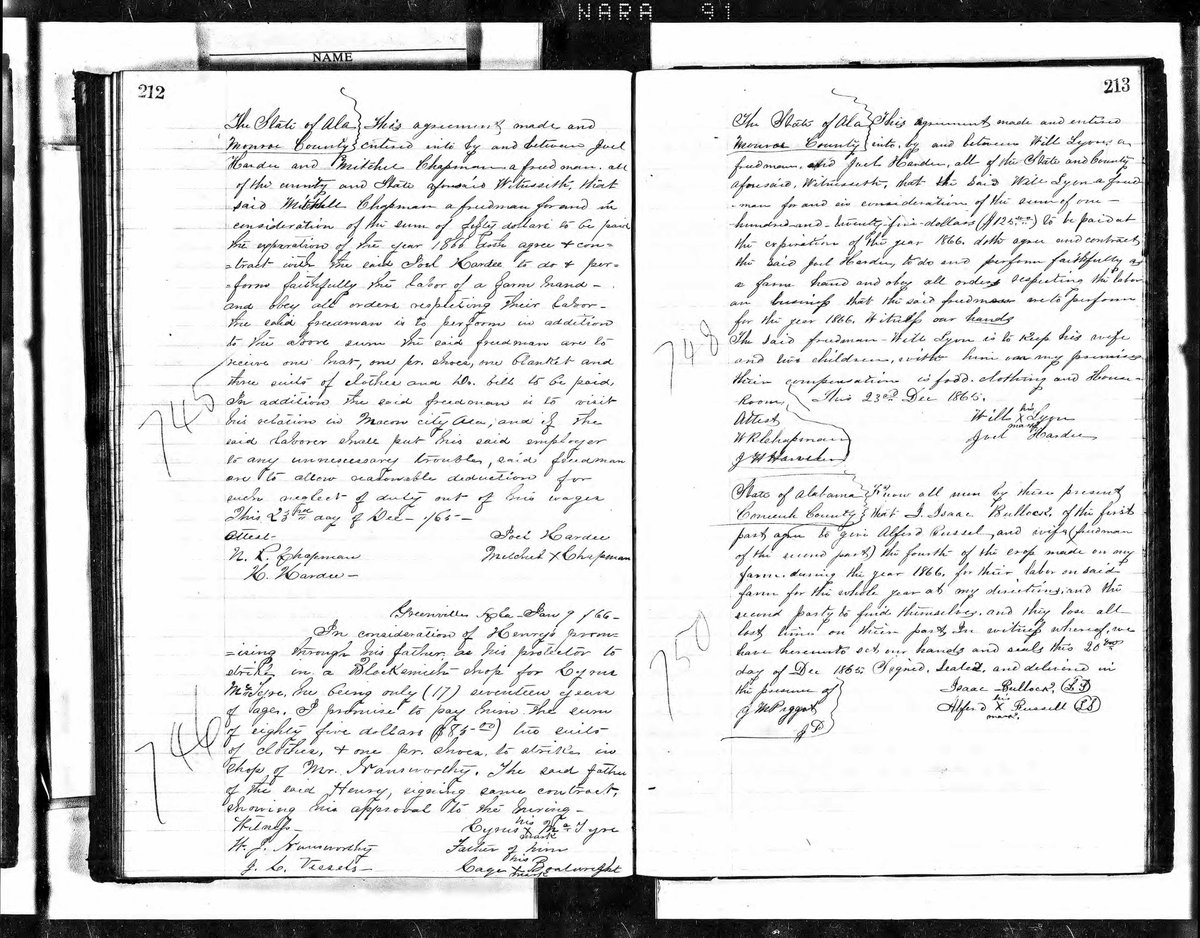 NARA 91
NAME
212
The State of Ala This agreement made and
Monroe County entered into by and between Joel
Hardee and Mitchel Chapman a freedman, all
of the county and State aforesaid Witnesseth, that
said Mitchell Chapman a freedman for and in
consideration of the sum of fifty dollars to be paid
the expiration of the year 1866 doth agree & con-
-tract with the said Joel Hardee to do & per-
-form faithfully the labor of a farm hand -
and obey all orders respecting their labor -
the said freedman is to perform in addition
to the above sum the said freedman are to
receive one hat, one pr. shoes, one blanket and
three suits of clothes and Dr. bill to be paid
In addition the said freedman is to visit
his relation in Macon city Ala, and if the
said laborer shall put his said employor
to any unnecessary trouble, said freedman
are to allow reasonable deduction for
such neglect of duty out of his wages
This 23rd day of Dec - /65 -
Attest Joel Hardee
N. R. Chapman Mitchel X Chapman
H. Hardee -
745
Greenville Ala Jan 9 /66 -
In consideration of Henrys prom-
-ising through his father, as his protector to
strike in a Blacksmith shop for Cyrus
he being only (17) seventeen years
of age. I promise to pay him the sum
of eighty five dollars ($85.00) two suits
of clothes, & one pr. shoes, to strike in
shop of Mr. The said father
of the said Henry, signing same contract,
showing his approval to the hiring -
Witness - Cyrus his X mark
W. J. Father of him
J. C. Vessels - Cage his X mark Boatwright
746
213
The State of Ala This agreement made and entered
Monroe County into, by and between Will Lyon, a
freedman, and Joel Hardee, all of the State and County
aforesaid, Witnesseth, that the said Will Lyon a freed
-man for and in consideration of the sum of one-
hundred-and-twenty-five-dollars ($125.00) to be paid at
the expiration of the year 1866. doth agree and contract
the said Joel Hardee, to do and perform faithfully as
a farm hand and obey all orders respecting the labor
or business that the said freedman are to perform
for the year 1866. Witness our hands
The said freedman - Will Lyon is to keep his wife
and two children, with him on my premises
their compensation is food, clothing and House-
Room, This 23rd Dec 1865.
Attest Will his X mark Lyon
W R Chapman Joel Hardee
748
State of Alabama Know all men by these present
Conecuh County that I. Isaac Bullock, of the first
part agree to give Alfred Russel, and wife (freedman
of the second part) the fourth of the crop made on my
farm, during the year 1866. for their labor on said
farm for the whole year at my directions, and the
second party to find themselves, and they lose all
lost time on their part In witness whereof, we
have hereunto set our hands and seals this 20
day of Dec 1865. Signed, sealed, and delivered in
the presence of Isaac Bullock
Alfred his X mark Russell
750